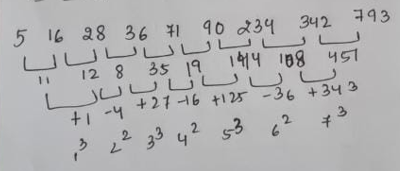 5 16 28 36 71 90 234 342 793
11 12 8 35 19 144 108 451
+1 -4 +27 -16 +125 -36 +343
1³ 2² 3³ 4² 5³ 6² 7³